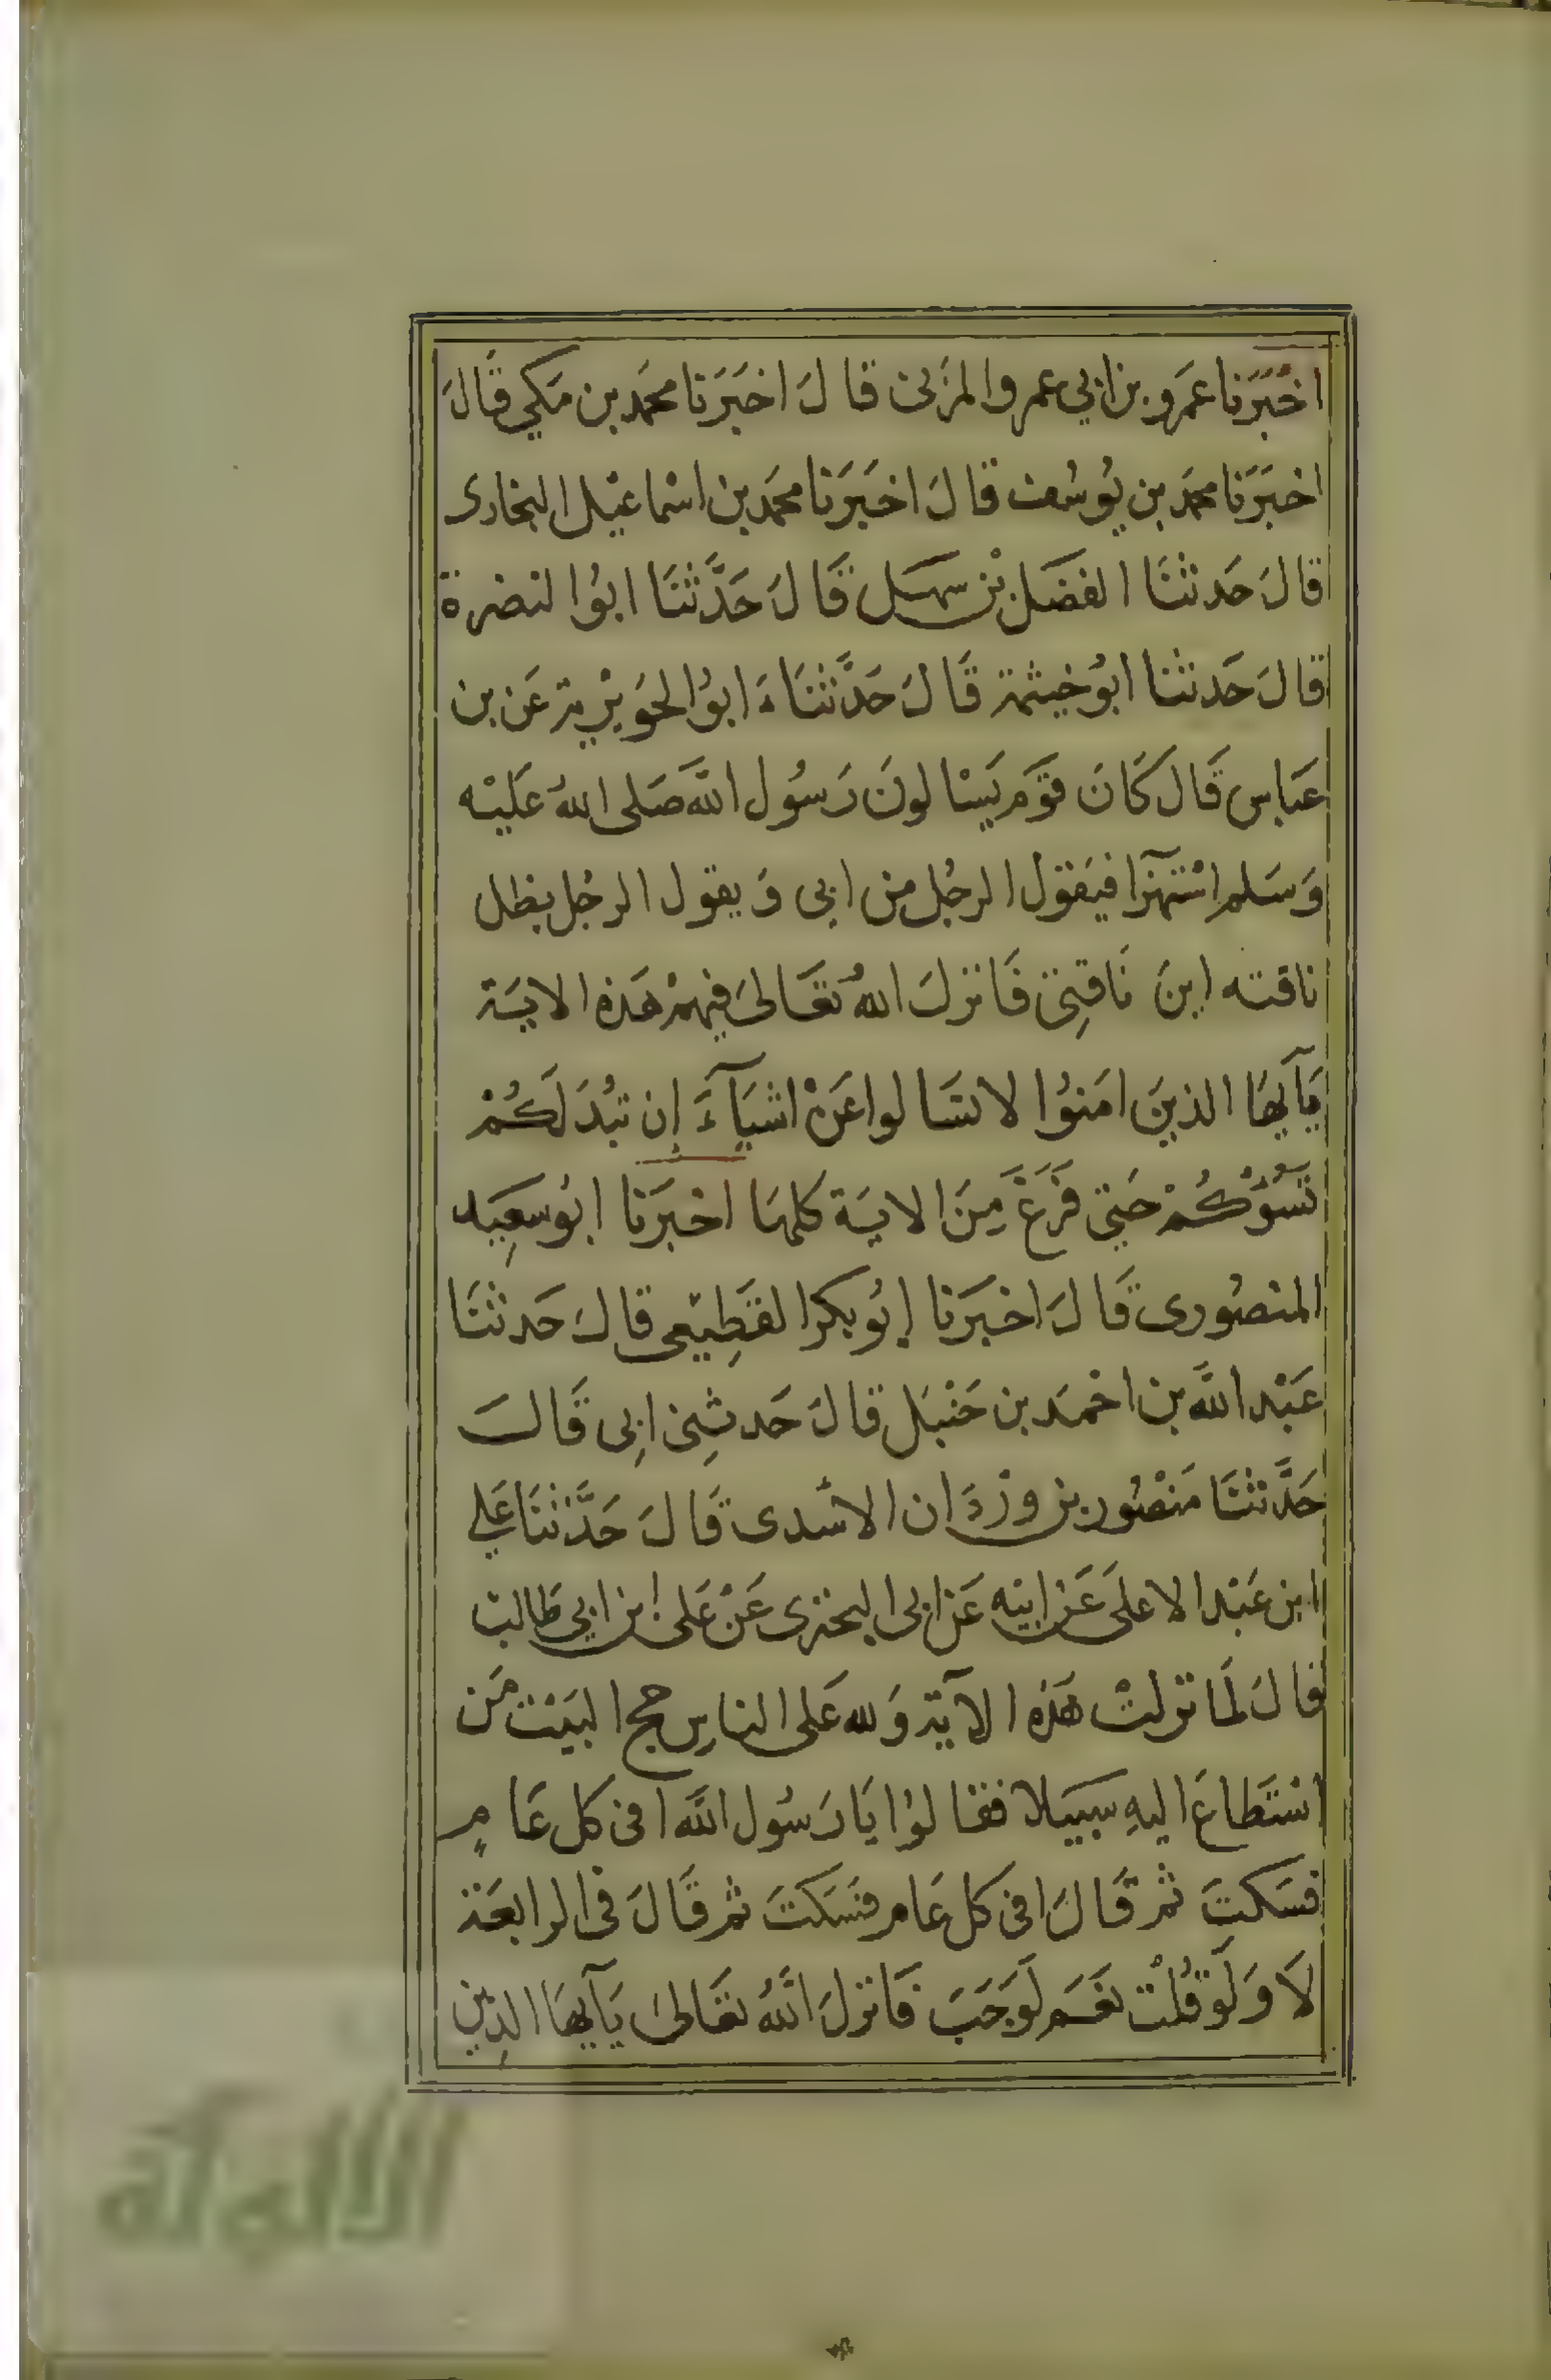 اخبَرَنا عَمَرو بن ابي عمرو المزَنى قالَ اخبَرَنا محمَد بن مَكي قَالَ
اخبَرَنا محمَد بن يوُسُف قالَ اخبَرَنا محمَد بن اسْماعيْل البخارى
قالَ حَدثنَا الفضَل بْن سهَل قَالَ حَدَّثنَا ابوُا لنضرة
قالَ حَدثنا ابوُ خيثمة قَالَ حَدَّثنَاءَ ابوُا لحوَيْرية عَن بن
عَباس قَال كَانَ قوَم يَسْالونَ رَسُول اللَّه صَلى اللهُ عَليْه
وَسَلم اسْتهزآ فيَقول الرجُل من ابى وَيقول الرجُل بظل
ناقته اينَ نَاقتِىْ فَانزلَ اللهُ تعَالىَ فيهمْ هَذه الايَة
يَآيهَا الذينَ امَنوُا لا تسَالوا عَنْ اشيَآءَ اِن تبُدَ لَكُمْ
تسُؤْكُمْ حَتي فَرَغَ مِنَ الايَة كلهَا اخبَرَنا ابوُ سعِيَد
المنصُورى قَالَ اخبَرَنا ابوُ بكر القطِيْعى قالَ حَدثنَا
عَبْد اللَّه بن احْمَد بن حَنْبَل قالَ حَدثِنى ابِى قَالَ
حَدَّثنَا مَنْصُور بن وزدَان الاسْدى قَالَ حَدَّثنَا عَلي
ابن عَبْد الاعلىَ عَن ابيْه عَن ابى البخترى عَنْ عَلى بن ابي طالب
قالَ لمَا نزلتْ هَذه الآية وَلله عَلى الناسِ حج البَيْت مَن
اسْتَطاعَ اليهِ سبيَلا فقالوُا يَا رَسُول اللَّه افى كل عَامٍ
فسَكتَ ثمْ قَالَ افى كل عَام فسَكتَ ثم قَالَ فى الرابعَة
لَا وَلَو قُلْت نعَم لَوجَبَ فَانزلَ اللَّهُ تعَالىَ يَآيهَا الذِين
الألوكة